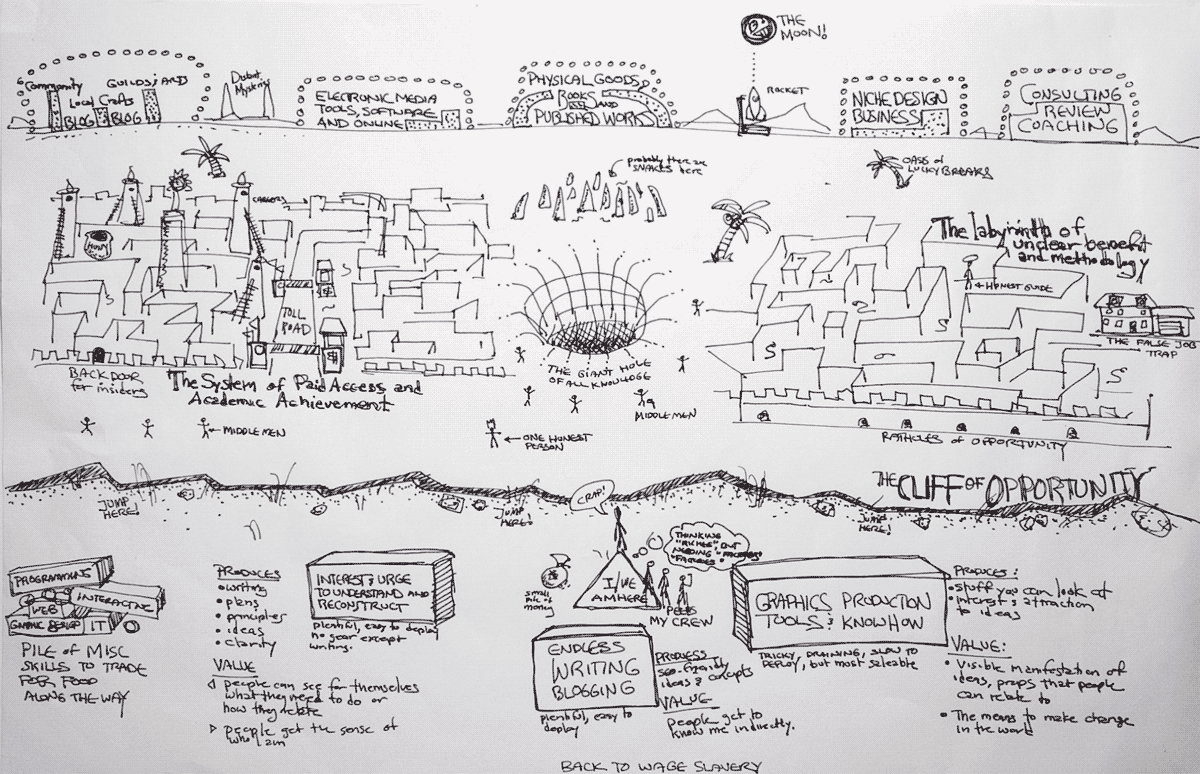 THE
MOON!
ROCKET
Community
GUILDS: ARD
Local Crafts
BLOG
BLOG
Dubai
Mystery
ELECTRONIC MEDIA
TOOLS, SOFTWARE
AND ONLINE
PHYSICAL GOODS,
BOOKS
AND
PUBLISHED WORKS
NICHE DESIGN
BUSINESS!
CONSULTING
REVIEW
COACHING
probably there are
SNAKES here
OASIS of
LUCKY BREAKS
CAREERS
TOLL
ROAD
BACK DOOR
for insiders
The System of Paid Access and
Academic Achievement
MIDDLE MEN
THE GIANT HOLE
OF ALL KNOWLEDGE
MIDDLE MEN
ONE HONEST
PERSON
The labyrinth of
unclear benefit
and methodology
HONEST GUIDE
THE FALSE JOB
TRAP
RATHOLES of OPPORTUNITY
THE CLIFF OF OPPORTUNITY
JUMP
HERE!
JUMP
HERE!
JUMP
HERE!
CRAP!
THINKING
"RICHES", BUT
NEEDING
small
pile of
money
I/WE
AM HERE
PEEPS
MY CREW
PROGRAMMING
WEB
INTERACTIVE
GRAPHIC DESIGN
IT
PILE OF MISC
SKILLS TO TRADE
FOR FOOD
ALONG THE WAY
PRODUCES
• writing
• plans
• principles
• ideas
• clarity
VALUE
people can see for themselves
what they need to do or
how they relate
people get the sense of
who I am
INTEREST & URGE
TO UNDERSTAND AND
RECONSTRUCT
plentiful, easy to deploy
no gear except
writing.
ENDLESS
WRITING
BLOGGING
plentiful, easy to
deploy
PRODUCES
seo-friendly
ideas & concepts
VALUE
people get to
know me indirectly.
GRAPHICS PRODUCTION
TOOLS & KNOWHOW
TRICKY, DRAINING, SLOW TO
DEPLOY, but most saleable
PRODUCES:
• stuff you can look at
• interest & attraction
to ideas
VALUE:
• Visible manifestation of
ideas, props that people
can relate to
• The means to make change
in the world
BACK TO WAGE SLAVERY